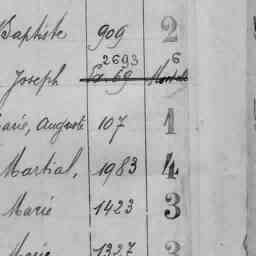 Baptiste 909 2
2693 6
Joseph
arie, Auguste 107 1
Martial, 1983 4
Marie 1423 3
Marie 1327 3